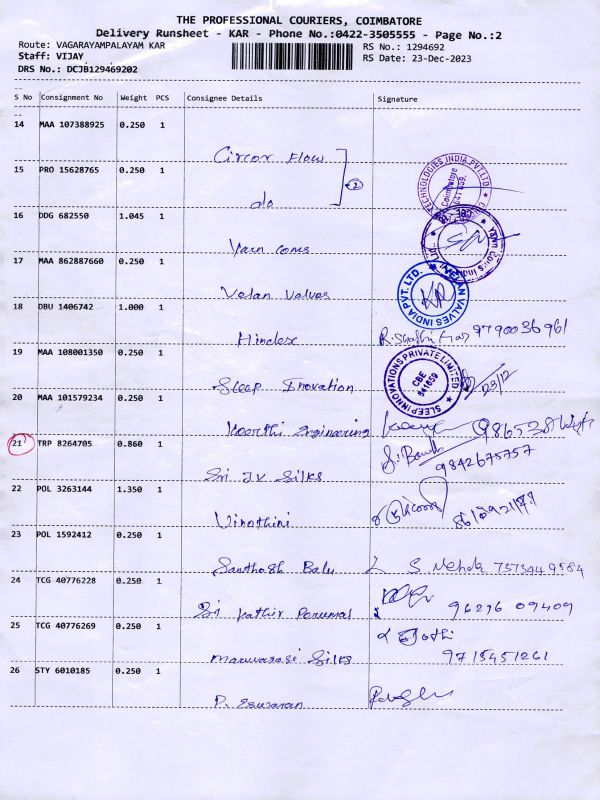 THE PROFESSIONAL COURIERS, COIMBATORE
Delivery Runsheet - KAR - Phone No.:0422-3505555 - Page No.:2
Route: VAGARAYAMPALAYAM KAR RS No.: 1294692
Staff: VIJAY RS Date: 23-Dec-2023
DRS No.: DCJB129469202
S No Consignment No Weight PCS Consignee Details Signature
14 MAA 107388925 0.250 1
Circor Flow
15 PRO 15628765 0.250 1
do
2
TECHNOLOGIES INDIA PVT.LTD.
Coimbatore
16 DDG 682550 1.045 1
Yarn cons
17 MAA 862887660 0.250 1
Velan Valves
VALVES INDIA PVT. LTD.
18 DBU 1406742 1.000 1
Hindex 9790036961
19 MAA 108001350 0.250 1
Sleep Inovation
SLEEP INNOVATIONS PRIVATE LIMITED
CBE
641659
23/12
20 MAA 101579234 0.250 1
Keerthi Engineering
21 TRP 8264705 0.860 1
9842675757
Sri JV Silks
22 POL 3263144 1.350 1
Vinothini
23 POL 1592412 0.250 1
Santhosh Balu S Mehda 7373449584
24 TCG 40776228 0.250 1
Sri Kathir Perumal 96296 09409
25 TCG 40776269 0.250 1
Jothi
Maruvarasi Silks 9715451261
26 STY 6010185 0.250 1
P. Eswaran